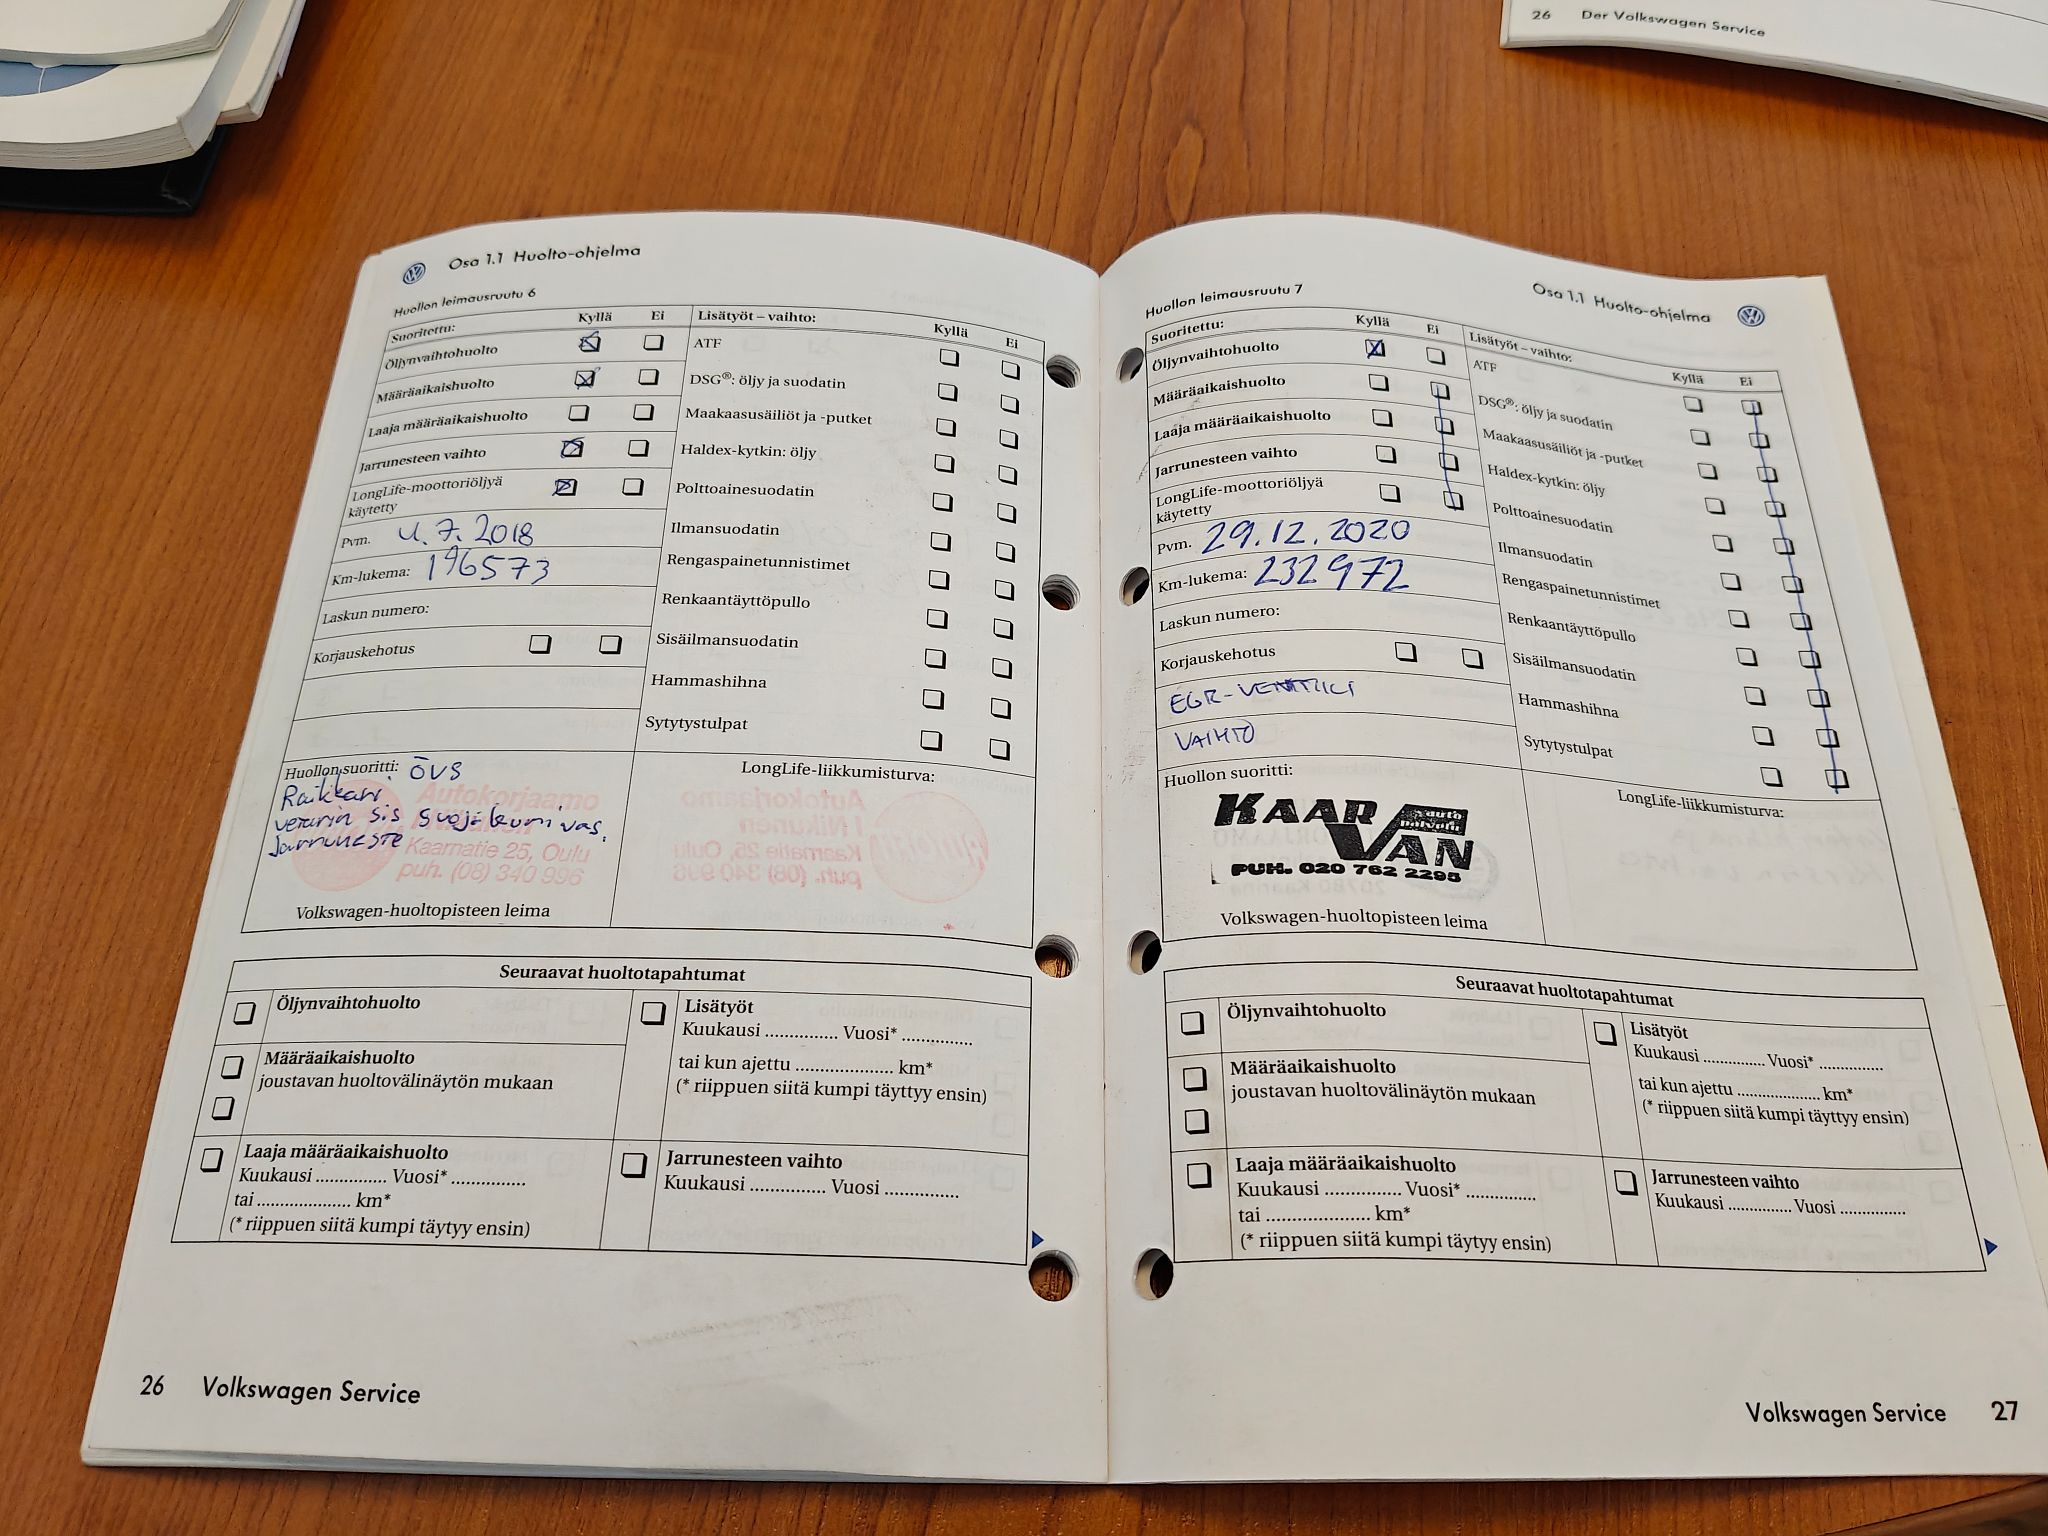 26 Der Volkswagen Service
Osa 1.1 Huolto-ohjelma
Huollon leimausruutu 6
Suoritettu: Kyllä Ei
Öljynvaihtohuolto
Määräaikaishuolto
Laaja määräaikaishuolto
Jarrunesteen vaihto
LongLife-moottoriöljyä
käytetty
Pvm. 4.7.2018
Km-lukema: 196573
Laskun numero:
Korjauskehotus
Lisätyöt – vaihto: Kyllä Ei
ATF
DSG®: öljy ja suodatin
Maakaasusäiliöt ja -putket
Haldex-kytkin: öljy
Polttoainesuodatin
Ilmansuodatin
Rengaspainetunnistimet
Renkaantäyttöpullo
Sisäilmansuodatin
Hammashihna
Sytytystulpat
Huollon suoritti: ÖVS
vetarin sis suojakumi vas.
Jarruneste
Autokorjaamo
I Nikunen
Kaarnatie 25, Oulu
puh. (08) 340 996
Volkswagen-huoltopisteen leima
LongLife-liikkumisturva:
Seuraavat huoltotapahtumat
Öljynvaihtohuolto
Määräaikaishuolto
joustavan huoltovälinäytön mukaan
Laaja määräaikaishuolto
Kuukausi .............. Vuosi* ...............
tai .................... km*
(* riippuen siitä kumpi täytyy ensin)
Lisätyöt
Kuukausi .............. Vuosi* ..............
tai kun ajettu .................... km*
(* riippuen siitä kumpi täyttyy ensin)
Jarrunesteen vaihto
Kuukausi .............. Vuosi ..............
26 Volkswagen Service
Osa 1.1 Huolto-ohjelma
Huollon leimausruutu 7
Suoritettu: Kyllä Ei
Öljynvaihtohuolto
Määräaikaishuolto
Laaja määräaikaishuolto
Jarrunesteen vaihto
LongLife-moottoriöljyä
käytetty
Pvm. 29.12.2020
Km-lukema: 232972
Laskun numero:
Korjauskehotus
EGR-VENTTIILI
VAIHTO
Lisätyöt – vaihto: Kyllä Ei
ATF
DSG®: öljy ja suodatin
Maakaasusäiliöt ja -putket
Haldex-kytkin: öljy
Polttoainesuodatin
Ilmansuodatin
Rengaspainetunnistimet
Renkaantäyttöpullo
Sisäilmansuodatin
Hammashihna
Sytytystulpat
Huollon suoritti:
KAAR
auto
palvelu
VAN
PUH. 020 762 2295
Volkswagen-huoltopisteen leima
LongLife-liikkumisturva:
Seuraavat huoltotapahtumat
Öljynvaihtohuolto
Määräaikaishuolto
joustavan huoltovälinäytön mukaan
Laaja määräaikaishuolto
Kuukausi ............... Vuosi* ..............
tai ..................... km*
(* riippuen siitä kumpi täytyy ensin)
Lisätyöt
Kuukausi ............. Vuosi* .............
tai kun ajettu .................... km*
(* riippuen siitä kumpi täyttyy ensin)
Jarrunesteen vaihto
Kuukausi ............. Vuosi ..............
Volkswagen Service 27